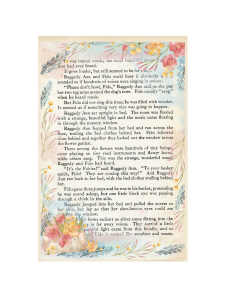 It was indeed voice, the most beautiful
Ann had ever heard.
It grew louder, but still seemed to be far away.
Raggedy Ann and Fido could hear it distinctly
sounded as if hundreds of voices were singing in unison.
"Please don't howl, Fido," Raggedy Ann said as she put
her two rag arms around the dog's nose. Fido usually "sang"
when he heard music.
But Fido did not sing this time; he was filled with wonder.
It seemed as if something very nice was going to happen.
Raggedy Ann sat upright in bed. The room was flooded
with a strange, beautiful light and the music came floating
in through the nursery window.
Raggedy Ann hopped from her bed and ran across the
floor, trailing the bed clothes behind her. Fido followed
close behind and together they looked out the window across
the flower garden.
There among the flowers were hundreds of tiny beings,
some playing on tiny reed instruments and flower horns,
while others sang. This was the strange, wonderful magic
Raggedy and Fido had heard.
"It's the Fairies!" said Raggedy Ann. "To your basket
quick, Fido! They are coming this way!" And Raggedy
Ann ran back to her bed, with the bed clothes trailing behind
her.
Fido gave three jumps and he was in his basket, pretending
he was sound asleep, but one little black eye was peeping
through a chink in the side.
Raggedy jumped into her bed and pulled the covers to
her chin, but lay so that her shoe-button eyes could see
the window.
fairies radiant as silver came flitting into the
far away voices. They carried a little
light came from this bundle, and to
Fido it seemed like sunshine and moon